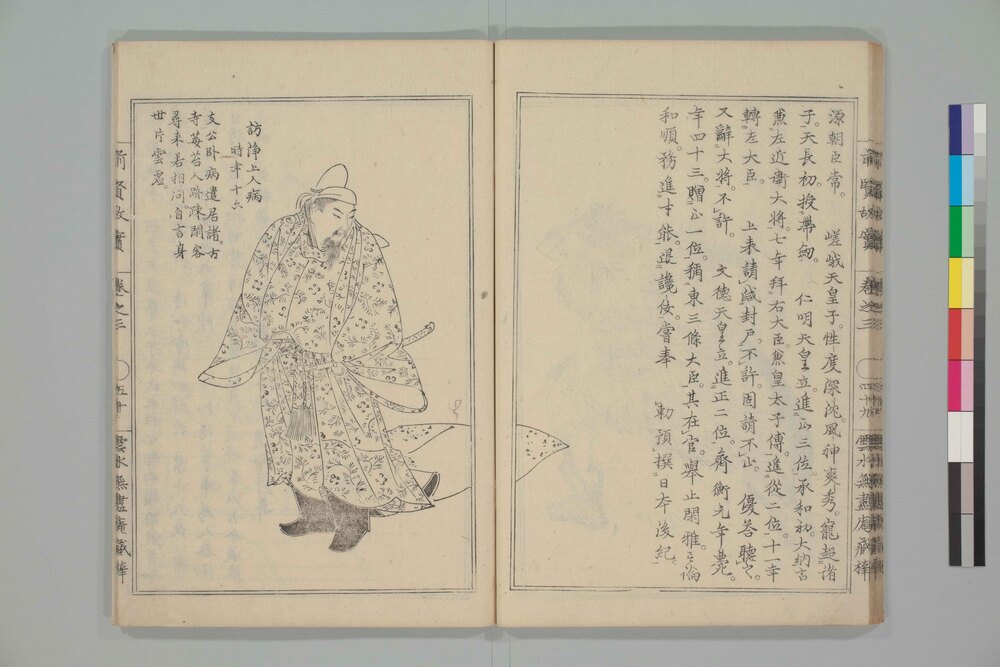 源朝臣常。　嵯峨天皇子。性度深沈。風神爽秀。寵超諸
子。天長初。授帶劒。　仁明天皇立。進正三位。承和初。大納言
兼左近衛大將。七年拜右大臣。兼皇太子傅。進從二位。十一年
轉左大臣。　上表請減封戶。不許。固請不止。　優答聽之。
又辭大將。不許。　文德天皇立。進正二位。齊衡元年薨。
年四十三。贈正一位。稱東三條大臣。其在官。擧止閑雅。言論
和順。務進才能。退讒佞。嘗奉　勅預撰日本後紀。
前賢故實
卷之三
四十九
雲水無盡庵藏梓
訪淨上人病
時年十六
支公臥病遣居諸。古
寺莓苔人跡疎。閑客
尋來若相問。自言身
世片雲虛。
前賢故實
卷之三
五十
雲水無盡庵藏梓